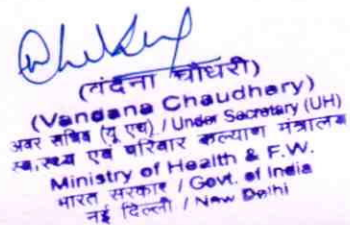 (वंदना चौधरी)
(Vandana Chaudhery)
अवर सचिव (यू एच) / Under Secretary (UH)
स्वास्थ्य एवं परिवार कल्याण मंत्रालय
Ministry of Health & F.W.
भारत सरकार / Govt. of India
नई दिल्ली / New Delhi